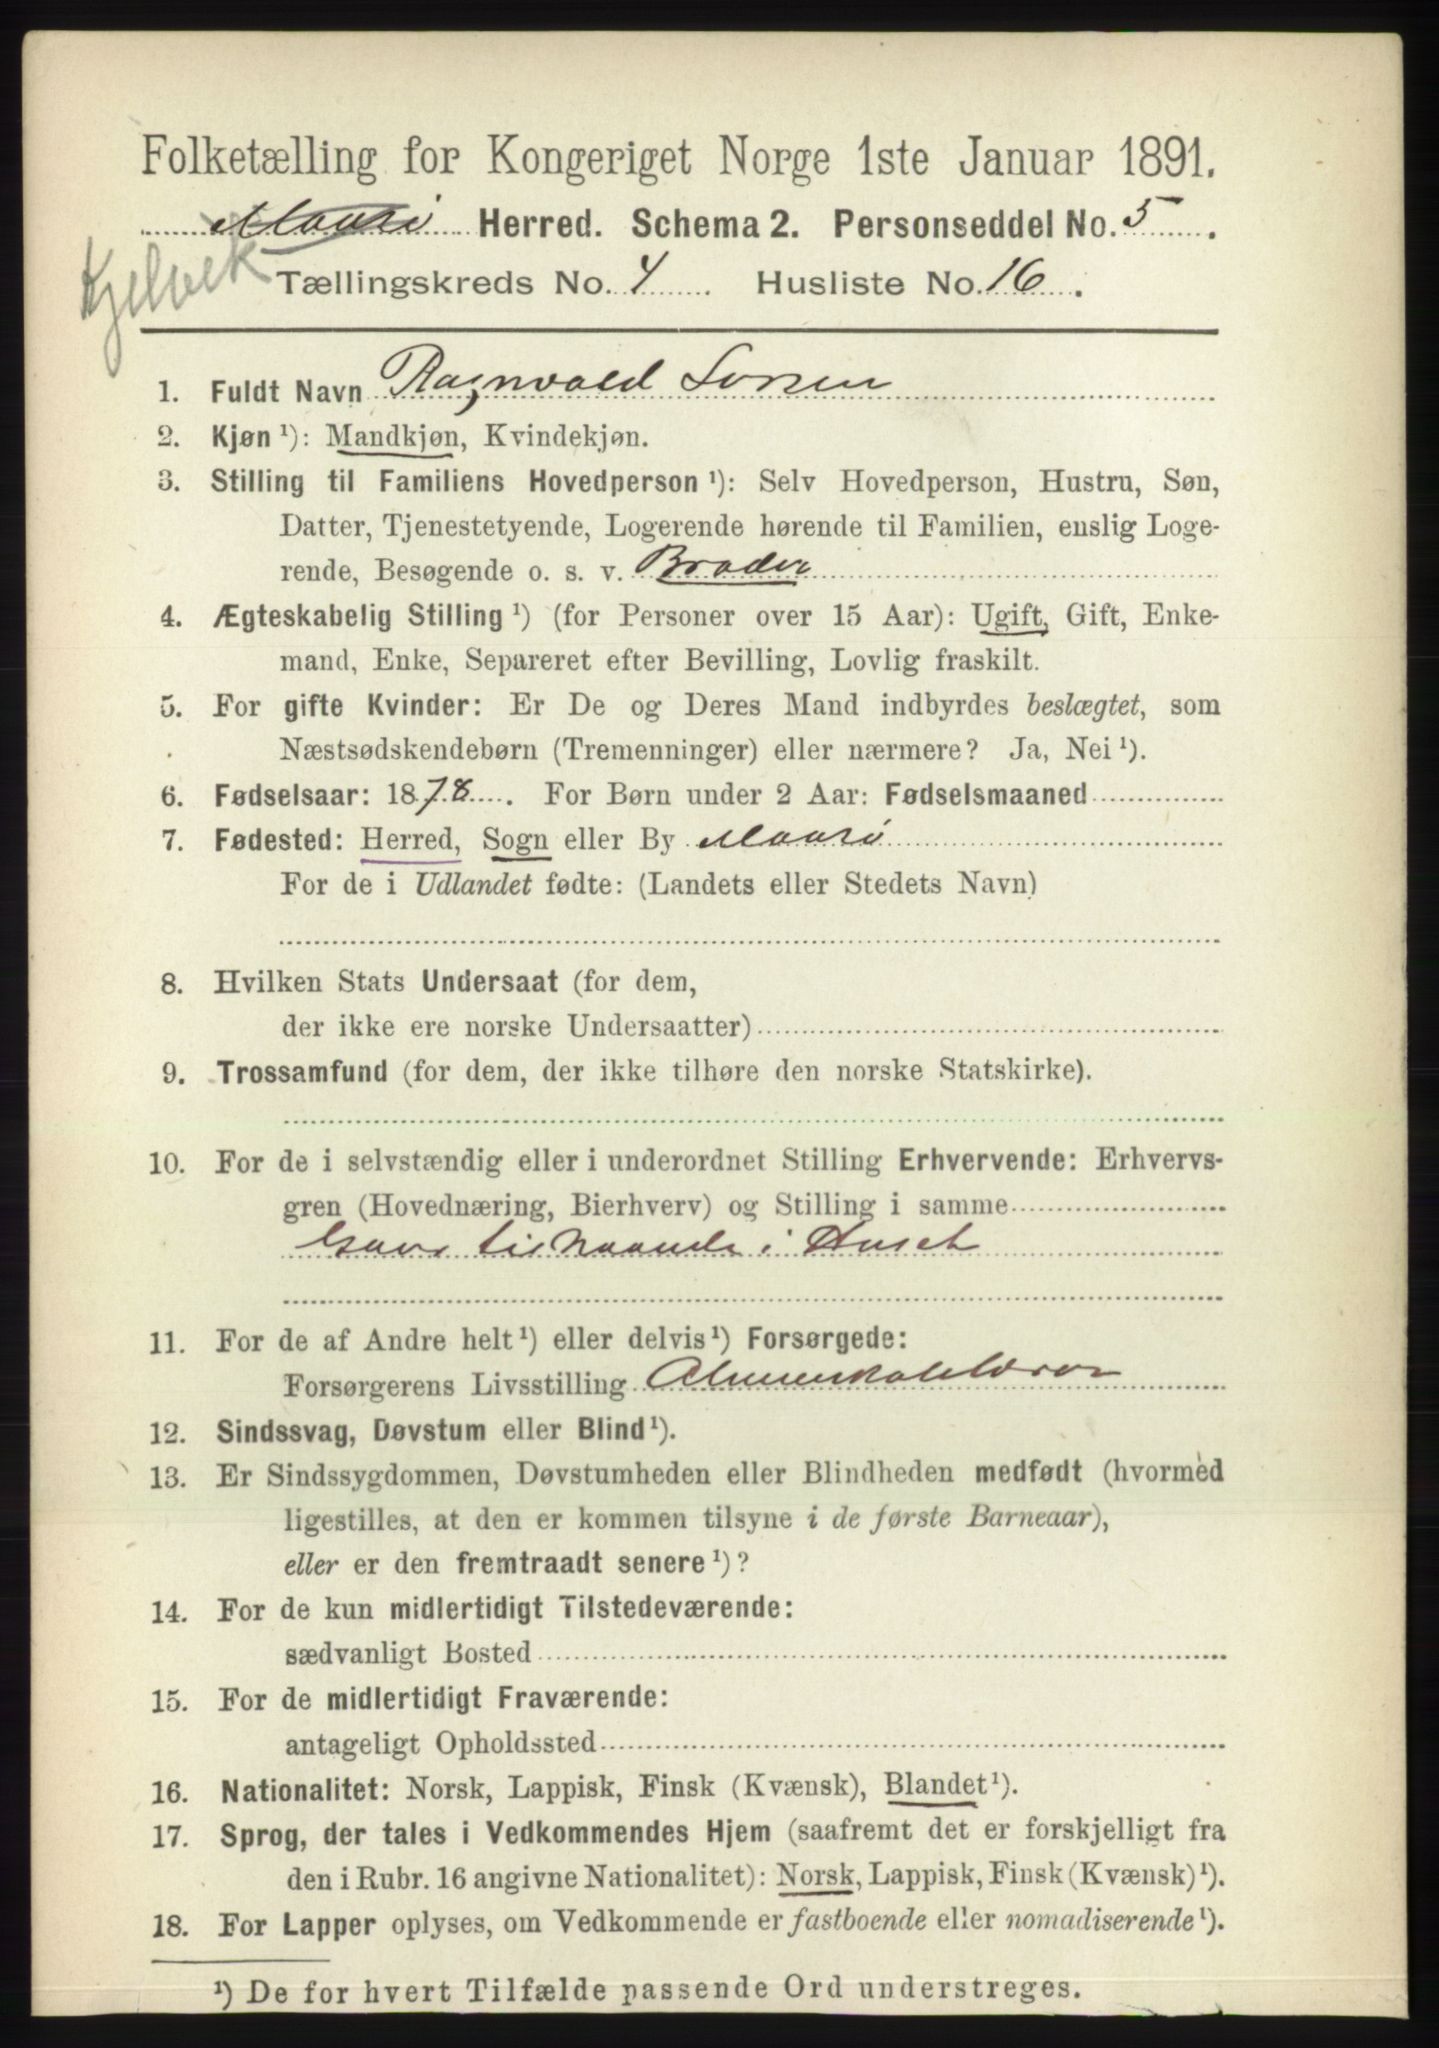 Folketælling for Kongeriget Norge 1ste Januar 1891.
Maasø Herred. Schema 2. Personseddel No. 5.
Kjelvik
Tællingskreds No. 4 Husliste No. 16.
1. Fuldt Navn Ragnvald
2. Kjøn ¹): Mandkjøn, Kvindekjøn.
3. Stilling til Familiens Hovedperson ¹): Selv Hovedperson, Hustru, Søn,
Datter, Tjenestetyende, Logerende hørende til Familien, enslig Loge-
rende, Besøgende o. s. v. Broder
4. Ægteskabelig Stilling ¹) (for Personer over 15 Aar): Ugift, Gift, Enke-
mand, Enke, Separeret efter Bevilling, Lovlig fraskilt.
5. For gifte Kvinder: Er De og Deres Mand indbyrdes beslægtet, som
Næstsødskendebørn (Tremenninger) eller nærmere? Ja, Nei ¹).
6. Fødselsaar: 1878. For Børn under 2 Aar: Fødselsmaaned
7. Fødested: Herred, Sogn eller By Maasø
For de i Udlandet fødte: (Landets eller Stedets Navn)
8. Hvilken Stats Undersaat (for dem,
der ikke ere norske Undersaatter)
9. Trossamfund (for dem, der ikke tilhøre den norske Statskirke).
10. For de i selvstændig eller i underordnet Stilling Erhvervende: Erhvervs-
gren (Hovednæring, Bierhverv) og Stilling i samme
Gaar til Haande i Huset
11. For de af Andre helt ¹) eller delvis ¹) Forsørgede:
Forsørgerens Livsstilling
12. Sindssvag, Døvstum eller Blind ¹).
13. Er Sindssygdommen, Døvstumheden eller Blindheden medfødt (hvormed
ligestilles, at den er kommen tilsyne i de første Barneaar),
eller er den fremtraadt senere ¹)?
14. For de kun midlertidigt Tilstedeværende:
sædvanligt Bosted
15. For de midlertidigt Fraværende:
antageligt Opholdssted
16. Nationalitet: Norsk, Lappisk, Finsk (Kvænsk), Blandet ¹).
17. Sprog, der tales i Vedkommendes Hjem (saafremt det er forskjelligt fra
den i Rubr. 16 angivne Nationalitet): Norsk, Lappisk, Finsk (Kvænsk) ¹).
18. For Lapper oplyses, om Vedkommende er fastboende eller nomadiserende ¹).
¹) De for hvert Tilfælde passende Ord understreges.